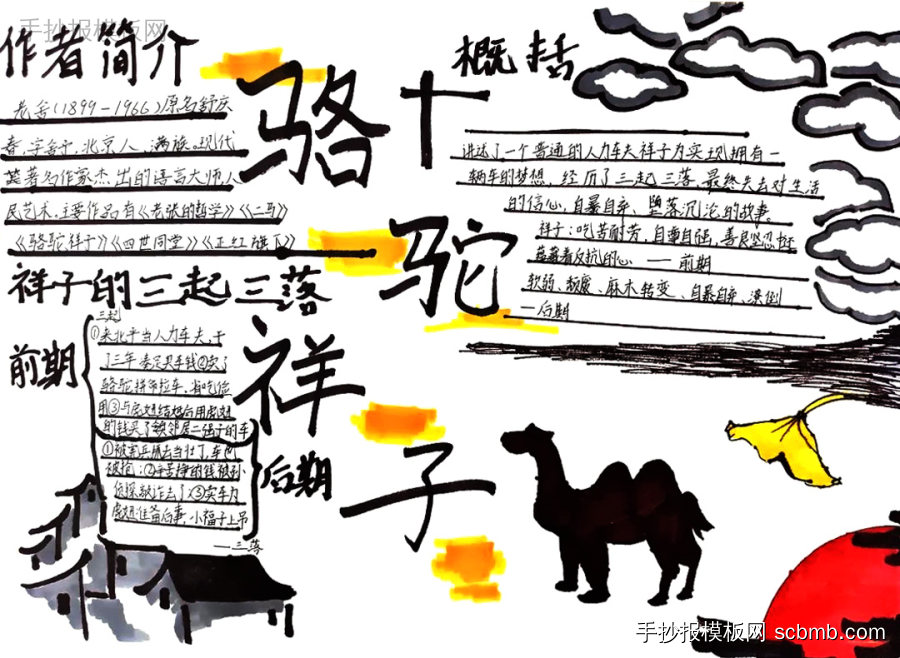 手抄报模板网
作者简介
老舍(1899-1966)原名舒庆
春,字舍予,北京人,满族。现代
著名作家杰出的语言大师人
民艺术.主要作品有《老张的哲学》《二马》
《骆驼祥子》《四世同堂》《正红旗下》
骆驼祥子
概括
讲述了一个普通的人力车夫祥子为实现拥有一
辆车的梦想,经历了三起三落,最终失去对生活
的信心,自暴自弃、堕落沉沦的故事.
祥子:吃苦耐劳,自尊自强,善良坚忍
着反抗的心 — 前期
软弱、颓废、麻木转变、自暴自弃、潦倒
—后期
祥子的三起三落
前期
三起
①来北平当人力车夫,干
了三年 买车钱②卖了
骆驼拼命拉车,省吃俭
用③与虎妞结婚后用虎妞
的钱买了邻居二强子的车
后期
①被 去当壮丁,车也
被抢:②辛苦挣的钱被孙
侦探敲诈去了③卖车为
虎妞准备后事,小福子上吊
—三落
手抄报模板网 scbmb.com